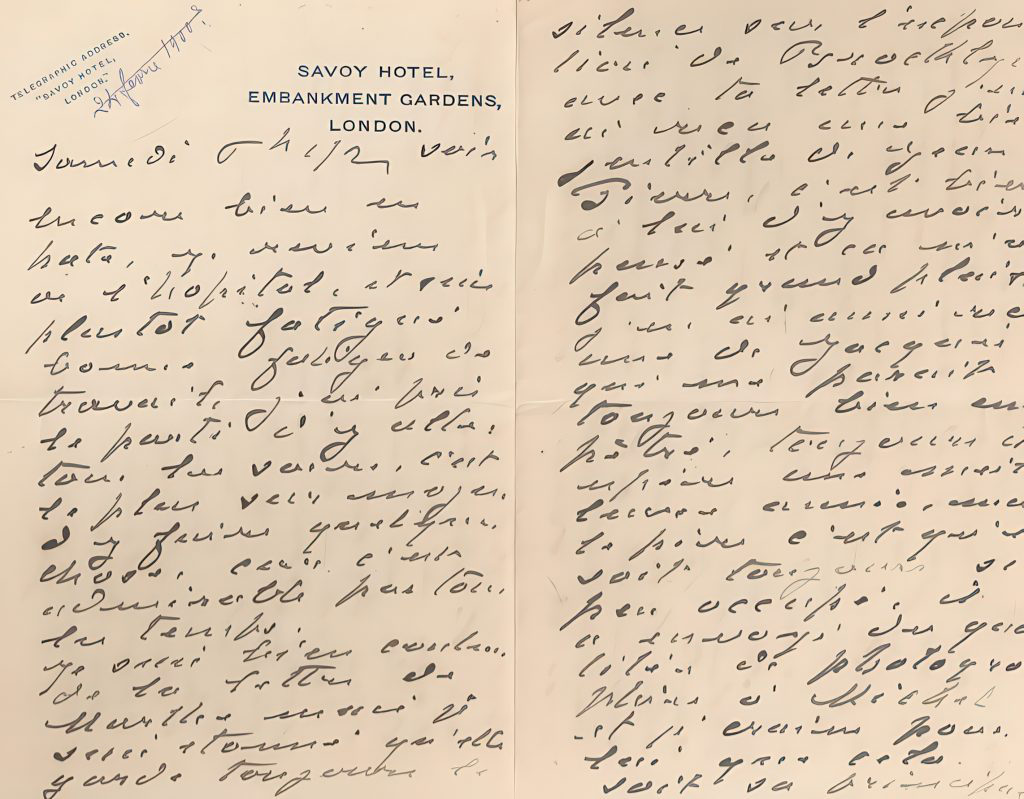 TELEGRAPHIC ADDRESS.
"SAVOY HOTEL,
LONDON."
1900
SAVOY HOTEL,
EMBANKMENT GARDENS,
LONDON.
Samedi 6 h 1/2 soir
encore bien en
hate, je reviens
de l'hopital, et suis
plustot fatigué
bonne fatigue de
travail, j'ai pris
le parti d'y aller
tous les soirs, c'est
le plus sur moyen
d'y faire quelque
chose, car c'est
admirable pas tous
les temps.
je suis bien content
de la lettre de
Marthe mais je
suis etonné qu'elle
garde toujours le
silence sur
de
avec ta lettre j'en
ai recu une très
gentille de Jean
Pierre, c'est bien
à lui d'y avoir
pensé et ça m'a
fait grand plaisir
j'en ai aussi recu
une de Jacques
qui me parait
toujours bien em
pêtré, toujours
une meil
leure année, mais
le pire c'est qu'il
soit toujours si
peu occupé, il
a envoyé des qua
lités de photogra
phies à Michel
et je crains pour
lui que cela
soit sa principa